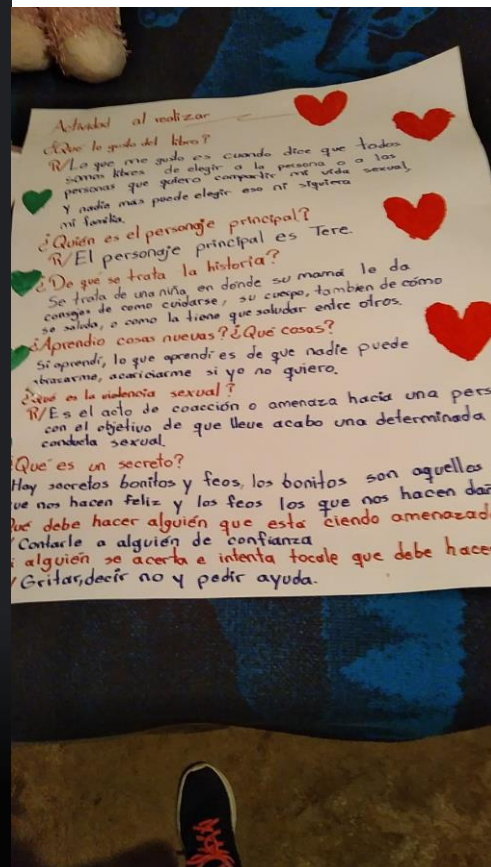 Actividad al realizar
¿Que le gusto del libro?
R/Lo que me gusto es cuando dice que todos
somos libres de elegir a la persona o a las
personas que quiero compartir mi vida sexual,
Y nadie mas puede elegir eso ni siquiera
mi familia.
¿Quién es el personaje principal?
R/El personaje principal es Tere.
¿De que se trata la historia?
Se trata de una niña, en donde su mamá le da
de como cuidarse, su cuerpo, tambien de cómo
se saluda, o como la tiene que saludar entre otros.
¿Aprendio cosas nuevas? ¿Qué cosas?
Si aprendi, lo que aprendi es de que nadie puede
abrazarme, acariciarme si yo no quiero.
¿Qué es la violencia sexual?
R/Es el acto de coacción o amenaza hacia una pers
con el objetivo de que lleve acabo una determinada
conducta sexual.
Que es un secreto?
Hay secretos bonitos y feos, los bonitos son aquellos
ue nos hacen feliz y los feos los que nos hacen dañ
Qué debe hacer alguién que está ciendo amenazad
Contarle a alguién de confianza
i alguién se acerta e intenta tocale que debe hacer
Gritar, decir no y pedir ayuda.